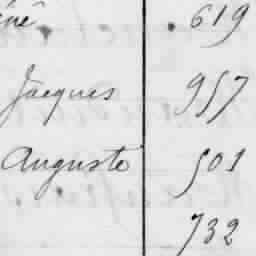 619
Jacques 957
Auguste 501
732